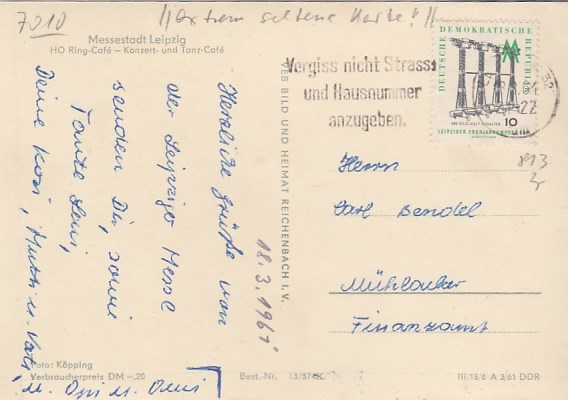 7010
!! Extrem seltene Karte! !!
Messestadt Leipzig
HO Ring-Café – Konzert- und Tanz-Café
Herzliche Grüße von
der Leipziger Messe
senden Dir, sowie
Tante Leni,
Deine Rosi, Mutti u. Vati,
u. Opi u. Omi
18.3.1961
VEB BILD UND HEIMAT REICHENBACH I. V.
Vergiss nicht Strasse
und Hausnummer
anzugeben.
DEUTSCHE DEMOKRATISCHE REPUBLIK
10
LEIPZIGER FRÜHJAHRSMESSE 1961
Herrn
Carl Bendel
Mühlacker
Finanzamt
Foto: Köpping
Verbraucherpreis DM –,20
Best.-Nr.
III/18/6 A 3/61 DDR